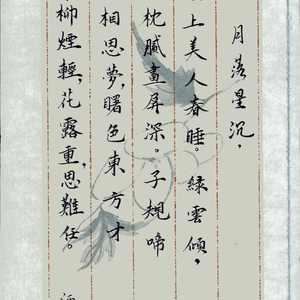 月落星沉,
上美人春睡。綠雲傾,
枕膩畫屏深。子規啼
相思夢,曙色東方才
柳煙輕,花露重,思難任。